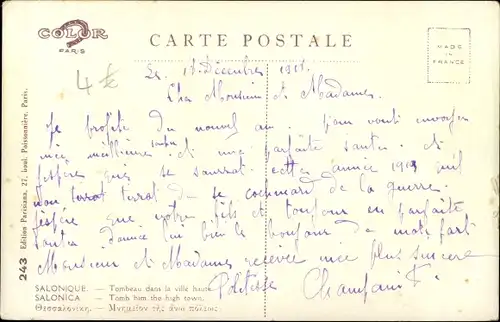 COLOR
PARIS
CARTE POSTALE
MADE IN FRANCE
4 €
Le 18 Décembre 191
Cher Monsieur et Madames
Je profite du nouvel an pour vous envoyer
mes meilleurs et une parfaite santée et
j'espere que se saurrat cette année 191
non verrat se cochmard de la guerre.
J'espère que votre fils et toujour en parfaite
Santée lui bien le bonjour de mon part
Monsieur et Madames recevez mes plus sincere
Politesse
243 Edition Parisiana, 27, boul. Poissonnière, Paris.
SALONIQUE. — Tombeau dans la ville haute.
SALONICA — Tomb him the high town.
Θεσσαλονίκη. — Μνημεῖον τῆς ἄνω πόλεως.